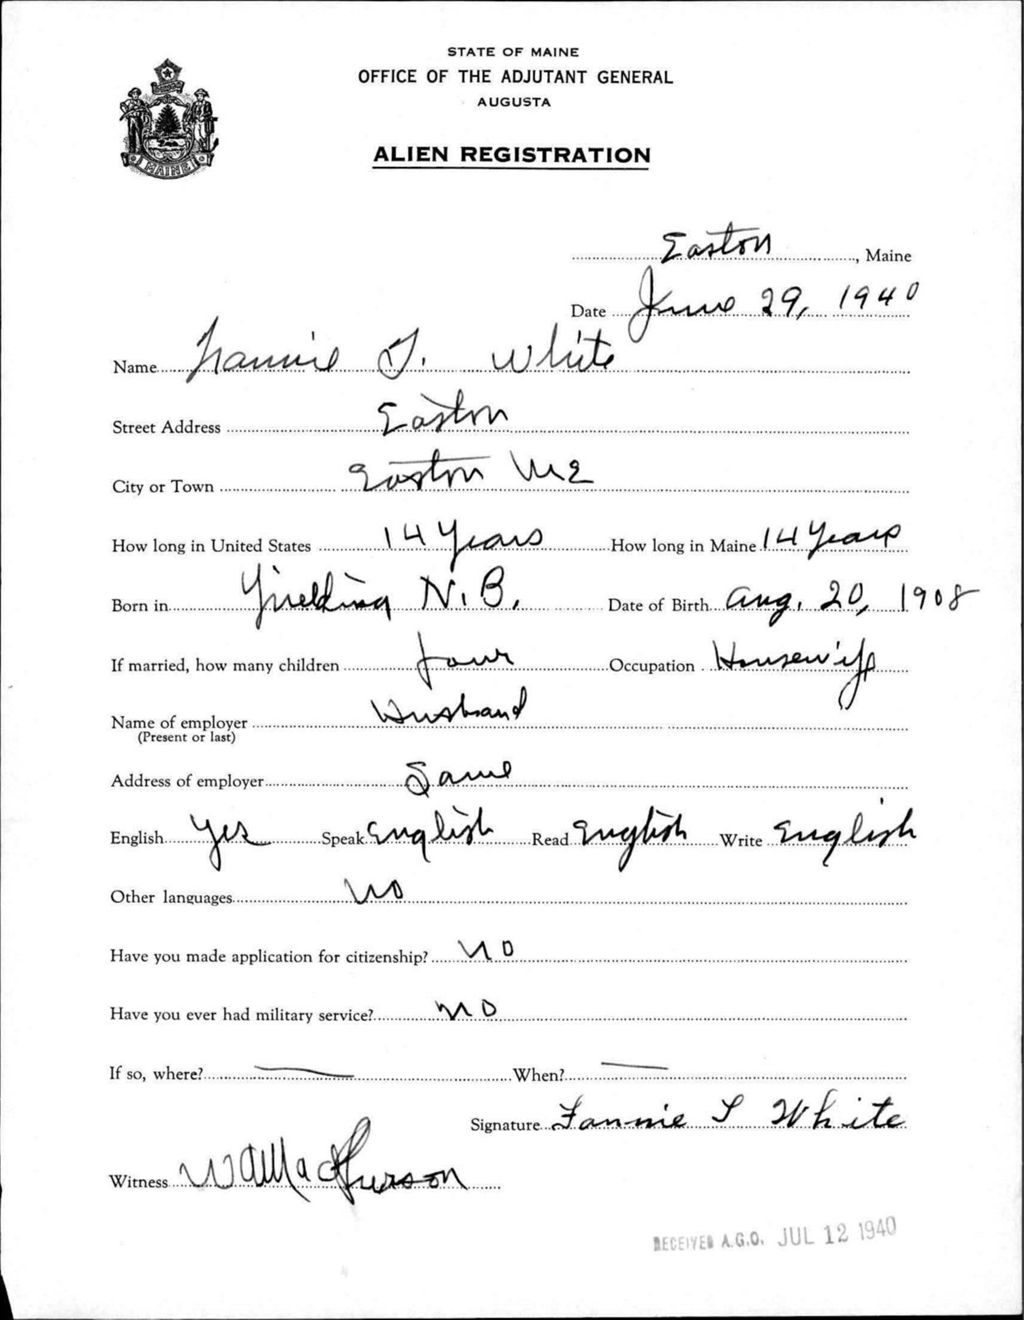 STATE OF MAINE
OFFICE OF THE ADJUTANT GENERAL
AUGUSTA
ALIEN REGISTRATION
MAINE
Easton, Maine
Date June 29, 1940
Name Fannie J. White
Street Address Easton
City or Town Easton Me
How long in United States 14 Years How long in Maine 14 Years
Born in N.B. Date of Birth Aug. 20, 1908
If married, how many children four Occupation Housewife
Name of employer Husband
(Present or last)
Address of employer Same
English Yes Speak English Read English Write English
Other languages No
Have you made application for citizenship? No
Have you ever had military service? No
If so, where? — When? —
Signature Fannie White
Witness
RECEIVED A.G.O. JUL 12 1940